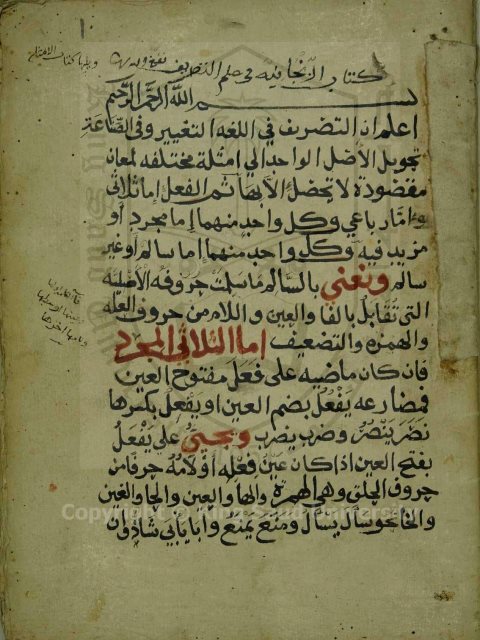 كتاب الزنجانية في علم التصريف
بسم الله الرحمن الرحيم
اعلم ان التصريف في اللغه التغيير وفي الصناعة
تحويل الأصل الواحد الى امثلة مختلفه لمعان
مقصودة لا تحصل الا بها ثم الفعل اما ثلاثي
واما رباعي وكل واحد منهما اما مجرد أو
مزيد فيه وكل واحد منهما اما سالم أو غير
سالم ونعني بالسالم ما سلمت حروفه الأصلية
التي تقابل بالفا والعين واللام من حروف العله
والهمزه والتضعيف اما الثلاثي المجرد
فان كان ماضيه على فعل مفتوح العين
فمضارعه يفعل بضم العين او يفعل بكسرها
نصر ينصر وضرب يضرب ويجيئ على يفعل
بفتح العين اذا كان عين فعله او لامه حرفا من
حروف الحلق وهي الهمزه والها والعين والحا والغين
والخا نحو سال يسال ومنع يمنع وابا يابي شاذ وان
Copyright © King Saud University